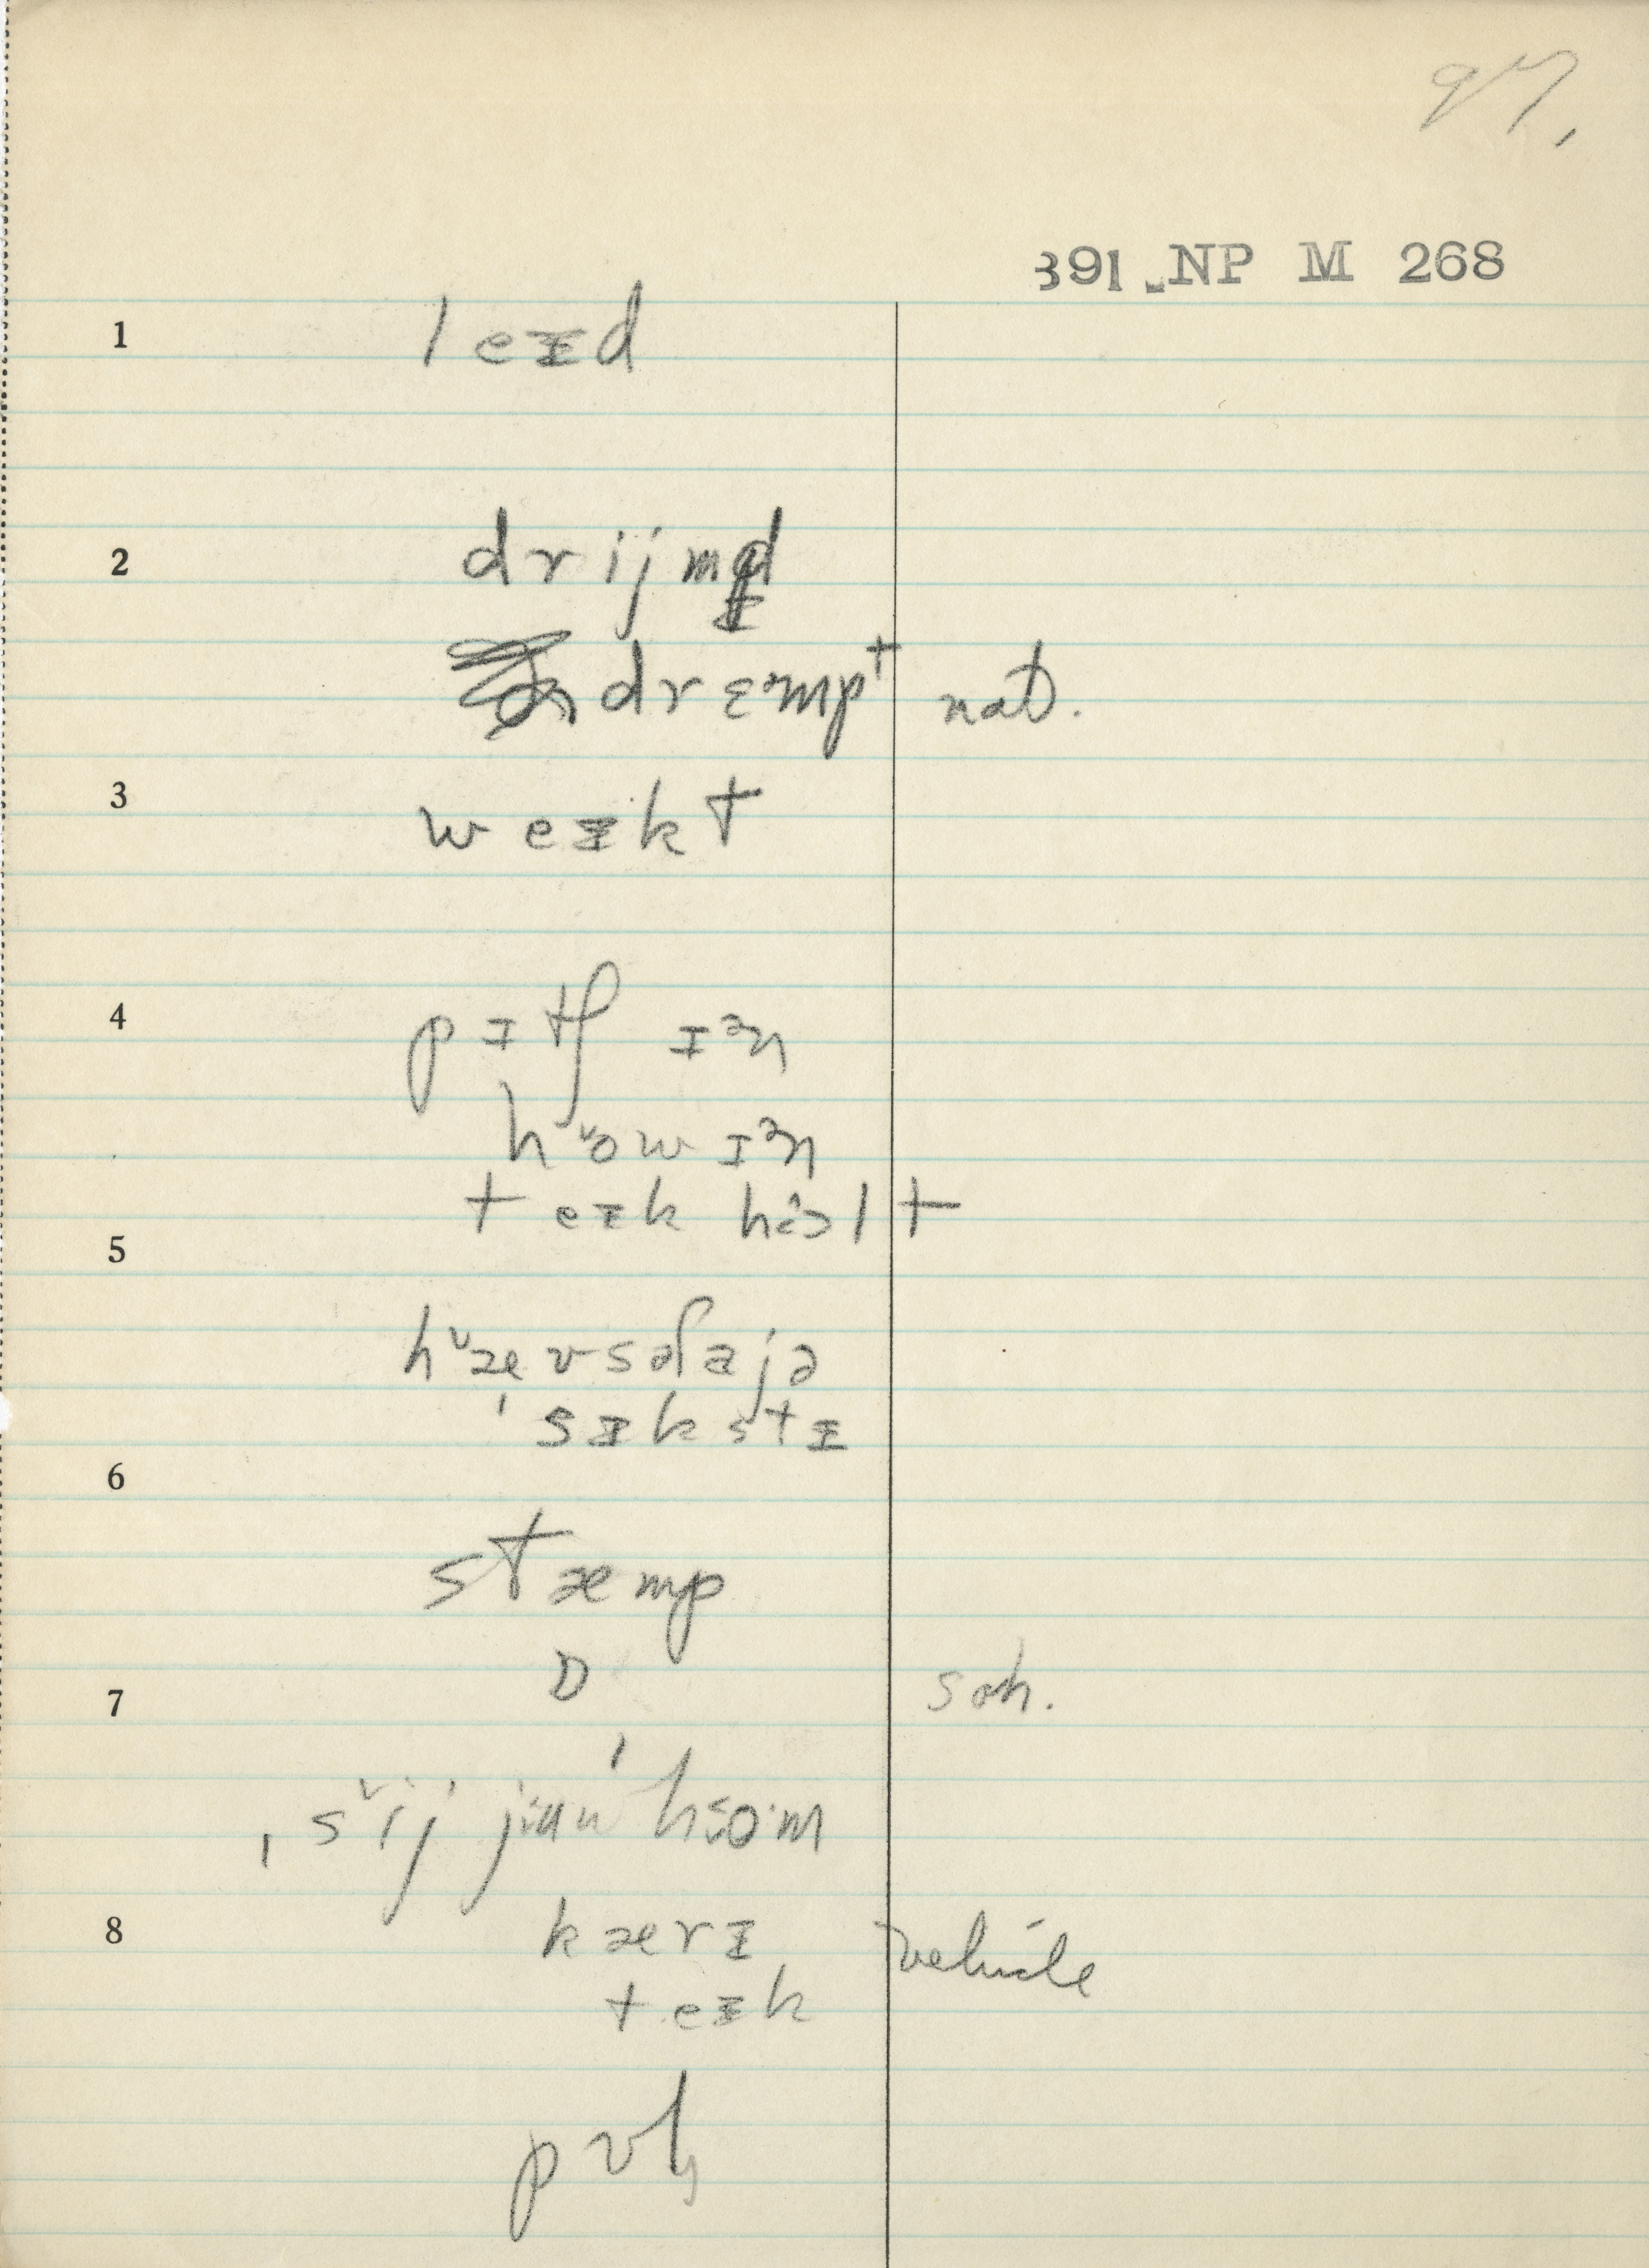 97.
391 NP M 268
1 leɪd
2 drijmd
drɛᵊmpt nat.
3 weɪkt
4 pɪtʃ ɪᵊn
hᵛow ɪᵊn
teɪk hɔlt
5
hᵛæv səfajə
ˈsɪkstɪ
6
stæmp
ɒ
7 soh.
ˌsᵛij juwˈhom
8 kærɪ vehicle
teɪk